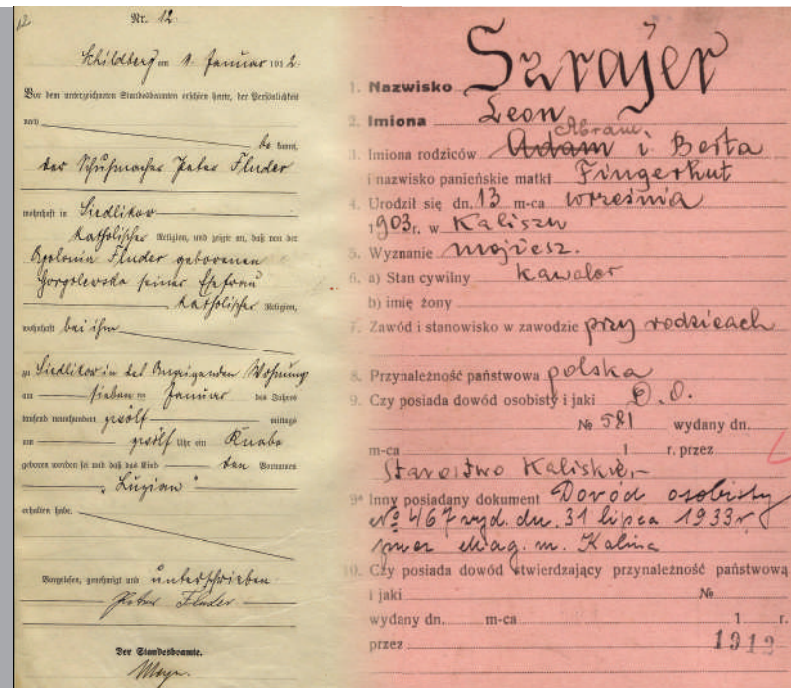 12
Nr. 12.
Schildberg am 9. Januar 1912.
Vor dem unterzeichneten Standesbeamten erschien heute, der Persönlichkeit
nach be kannt,
der Schuhmacher Peter Fluder
wohnhaft in Siedlikow
katholischer Religion, und zeigte an, daß von der
Apolonia Fluder geborenen
Gorgolewska seiner Ehefrau
katholischer Religion,
wohnhaft bei ihm
zu Siedlikow in des Anzeigenden Wohnung
am sieben ten Januar des Jahres
tausend neunhundert zwölf mittags
um zwölf Uhr ein Knabe
geboren worden sei und daß das Kind den Vornamen
„Luzian“
erhalten habe.
Vorgelesen, genehmigt und unterschrieben
Peter Fluder
Der Standesbeamte.
1. Nazwisko Szrajer
2. Imiona Leon
Abram
3. Imiona rodziców Adam i Berta
i nazwisko panieńskie matki Fingerhut
4. Urodził się dn. 13 m-ca września
1903 r. w Kaliszu
5. Wyznanie mojżesz.
6. a) Stan cywilny kawaler
b) imię żony
7. Zawód i stanowisko w zawodzie przy rodzicach
8. Przynależność państwowa polska
9. Czy posiada dowód osobisty i jaki D. O.
№ 581 wydany dn.
m-ca 1 r. przez
Starostwo Kaliskie
9a Inny posiadany dokument Dowód osobisty
№ 467 wyd. dn. 31 lipca 1933 r
przez Mag. m. Kalisza
10. Czy posiada dowód stwierdzający przynależność państwową
i jaki №
wydany dn. m-ca 1 r.
przez 1912